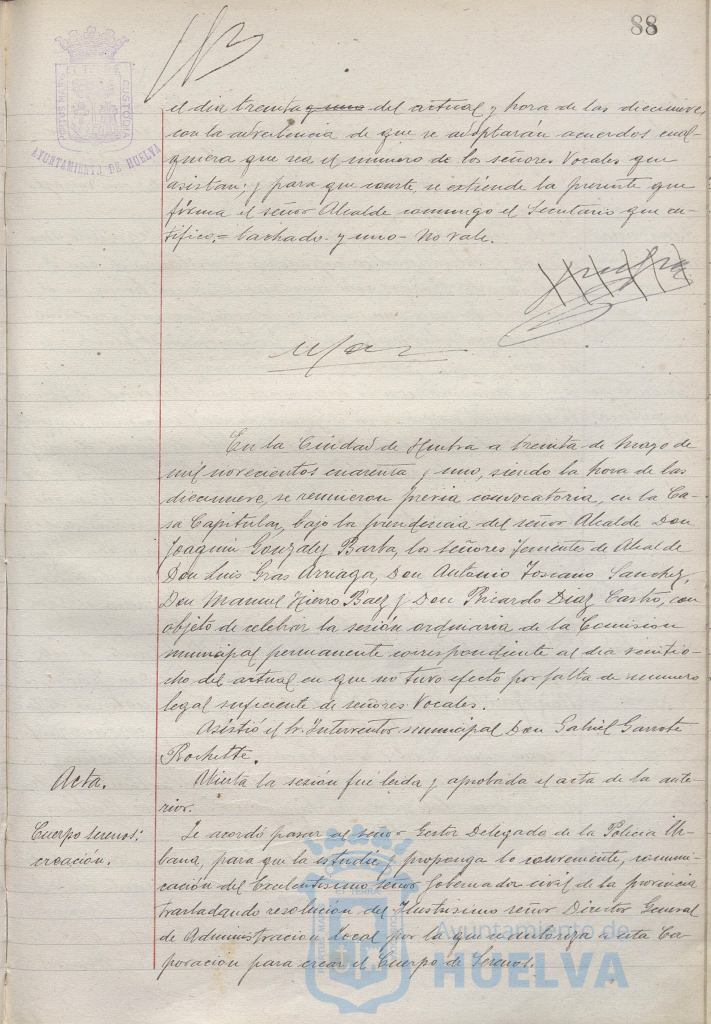 88
AYUNTAMIENTO DE HUELVA
el dia treinta y uno del actual y hora de las diecinueve
con la advertencia de que se adoptarán acuerdos cual-
quiera que sea el numero de los señores Vocales que
asistan; y para que conste, se extiende la presente que
firma el señor Alcalde conmigo el Secretario que cer-
tifico.= tachado - y uno - No vale.
En la Ciudad de Huelva a treinta de Mayo de
mil novecientos cuarenta y uno, siendo la hora de las
diecinueve, se reunieron previa convocatoria, en la Ca-
sa Capitular, bajo la presidencia del señor Alcalde Don
Joaquin Gonzalez Barba, los señores Tenientes de Alcalde
Don Luis Gras Arriaga, Don Antonio Toscano Sanchez,
Don Manuel Hierro Baez y Don Ricardo Diaz Castro, con
objeto de celebrar la sesión ordinaria de la Comision
municipal permanente correspondiente al dia veintio-
cho del actual en que no tuvo efecto por falta de numero
legal suficiente de señores Vocales.
Asistió el Sr. Interventor municipal Don Gabriel Garrote
Rochette.
Acta.
Abierta la sesión fué leida y aprobada el acta de la ante-
rior.
Cuerpo serenos:
creación.
Se acordó pasar al señor Gestor Delegado de la Policia Ur-
bana, para que la estudie y proponga lo conveniente, comuni-
cación del Excelentisimo señor Gobernador civil de la provincia
trasladando resolución del Ilustrisimo señor Director General
de Administracion Local por la que se autoriza a esta Cor-
poracion para crear el Cuerpo de Serenos.
Ayuntamiento de
HUELVA